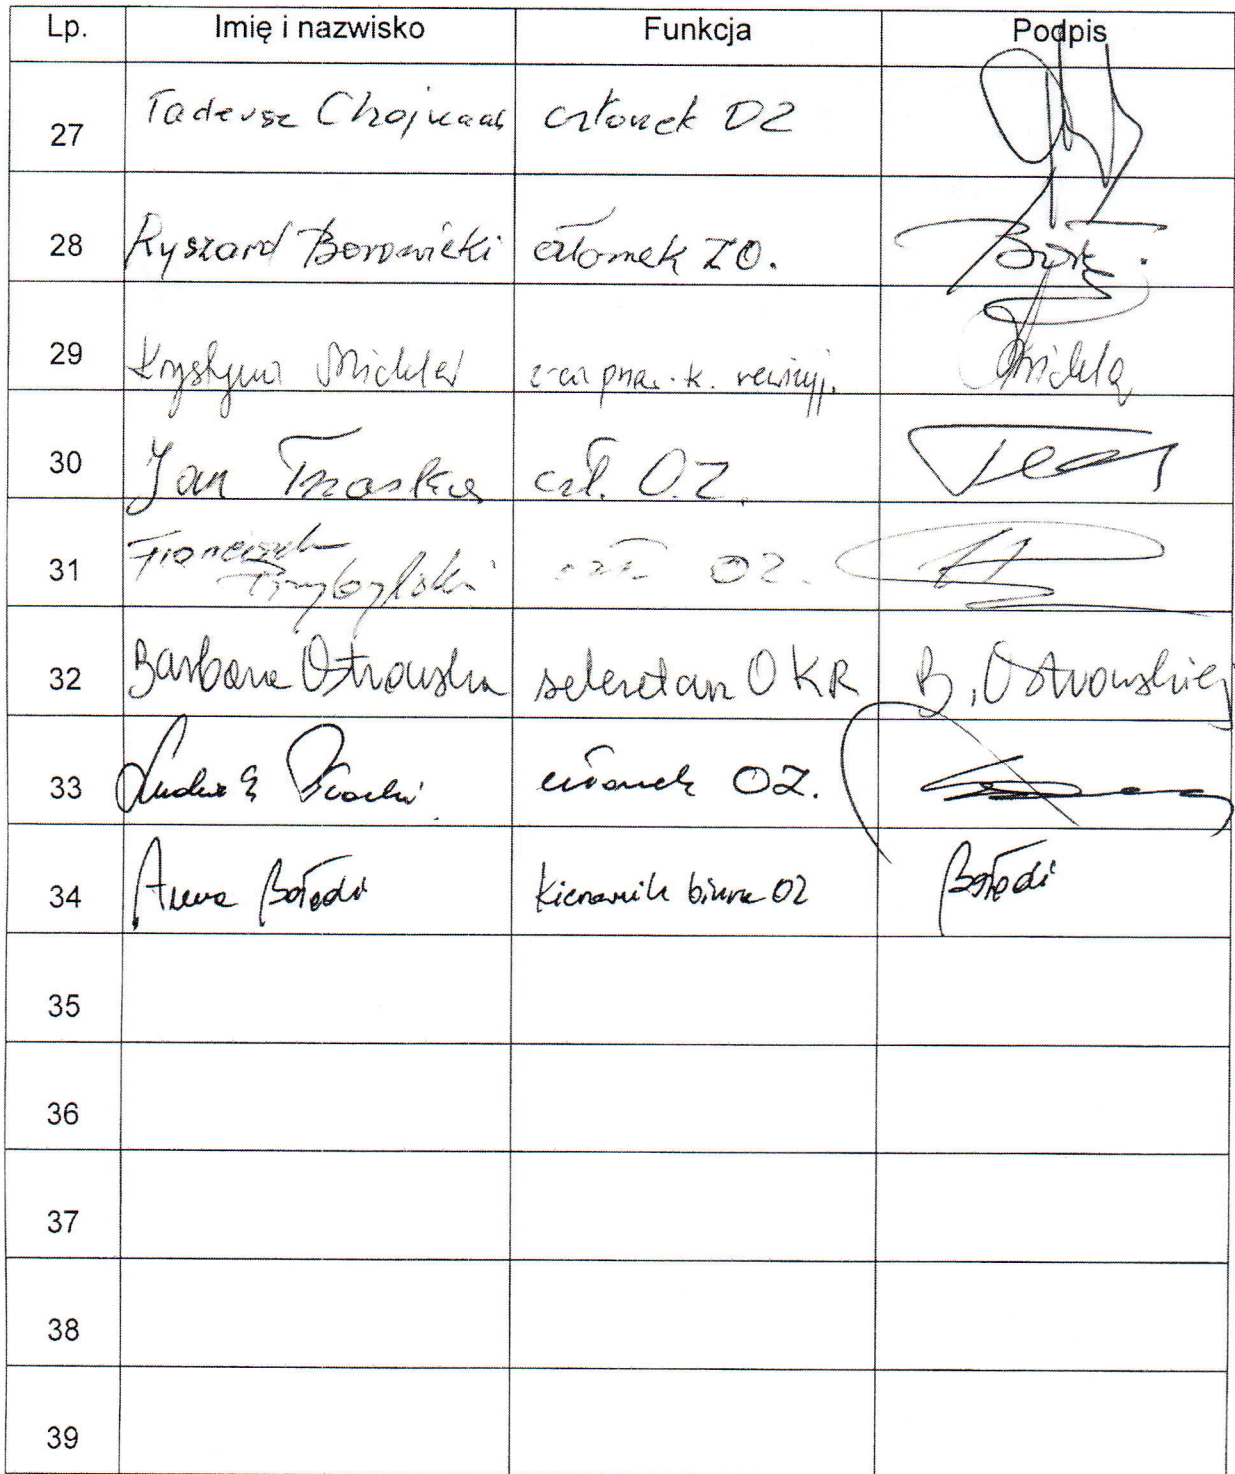 Lp. Imię i nazwisko Funkcja Podpis
27 Tadeusz Chojnacki członek OZ
28 Ryszard Borowiecki członek ZO.
29 Krystyna Mickla z-ca prze. k. rewizyj. Mickla
30 Jan Trzaska czł. O.Z.
31 Franciszek
Przybylski czł. OZ.
32 Barbara Ostrowska sekretarz OKR B. Ostrowska
33 członek OZ.
34 Anna Bołądź Kierownik biura OZ Bołądź
35
36
37
38
39